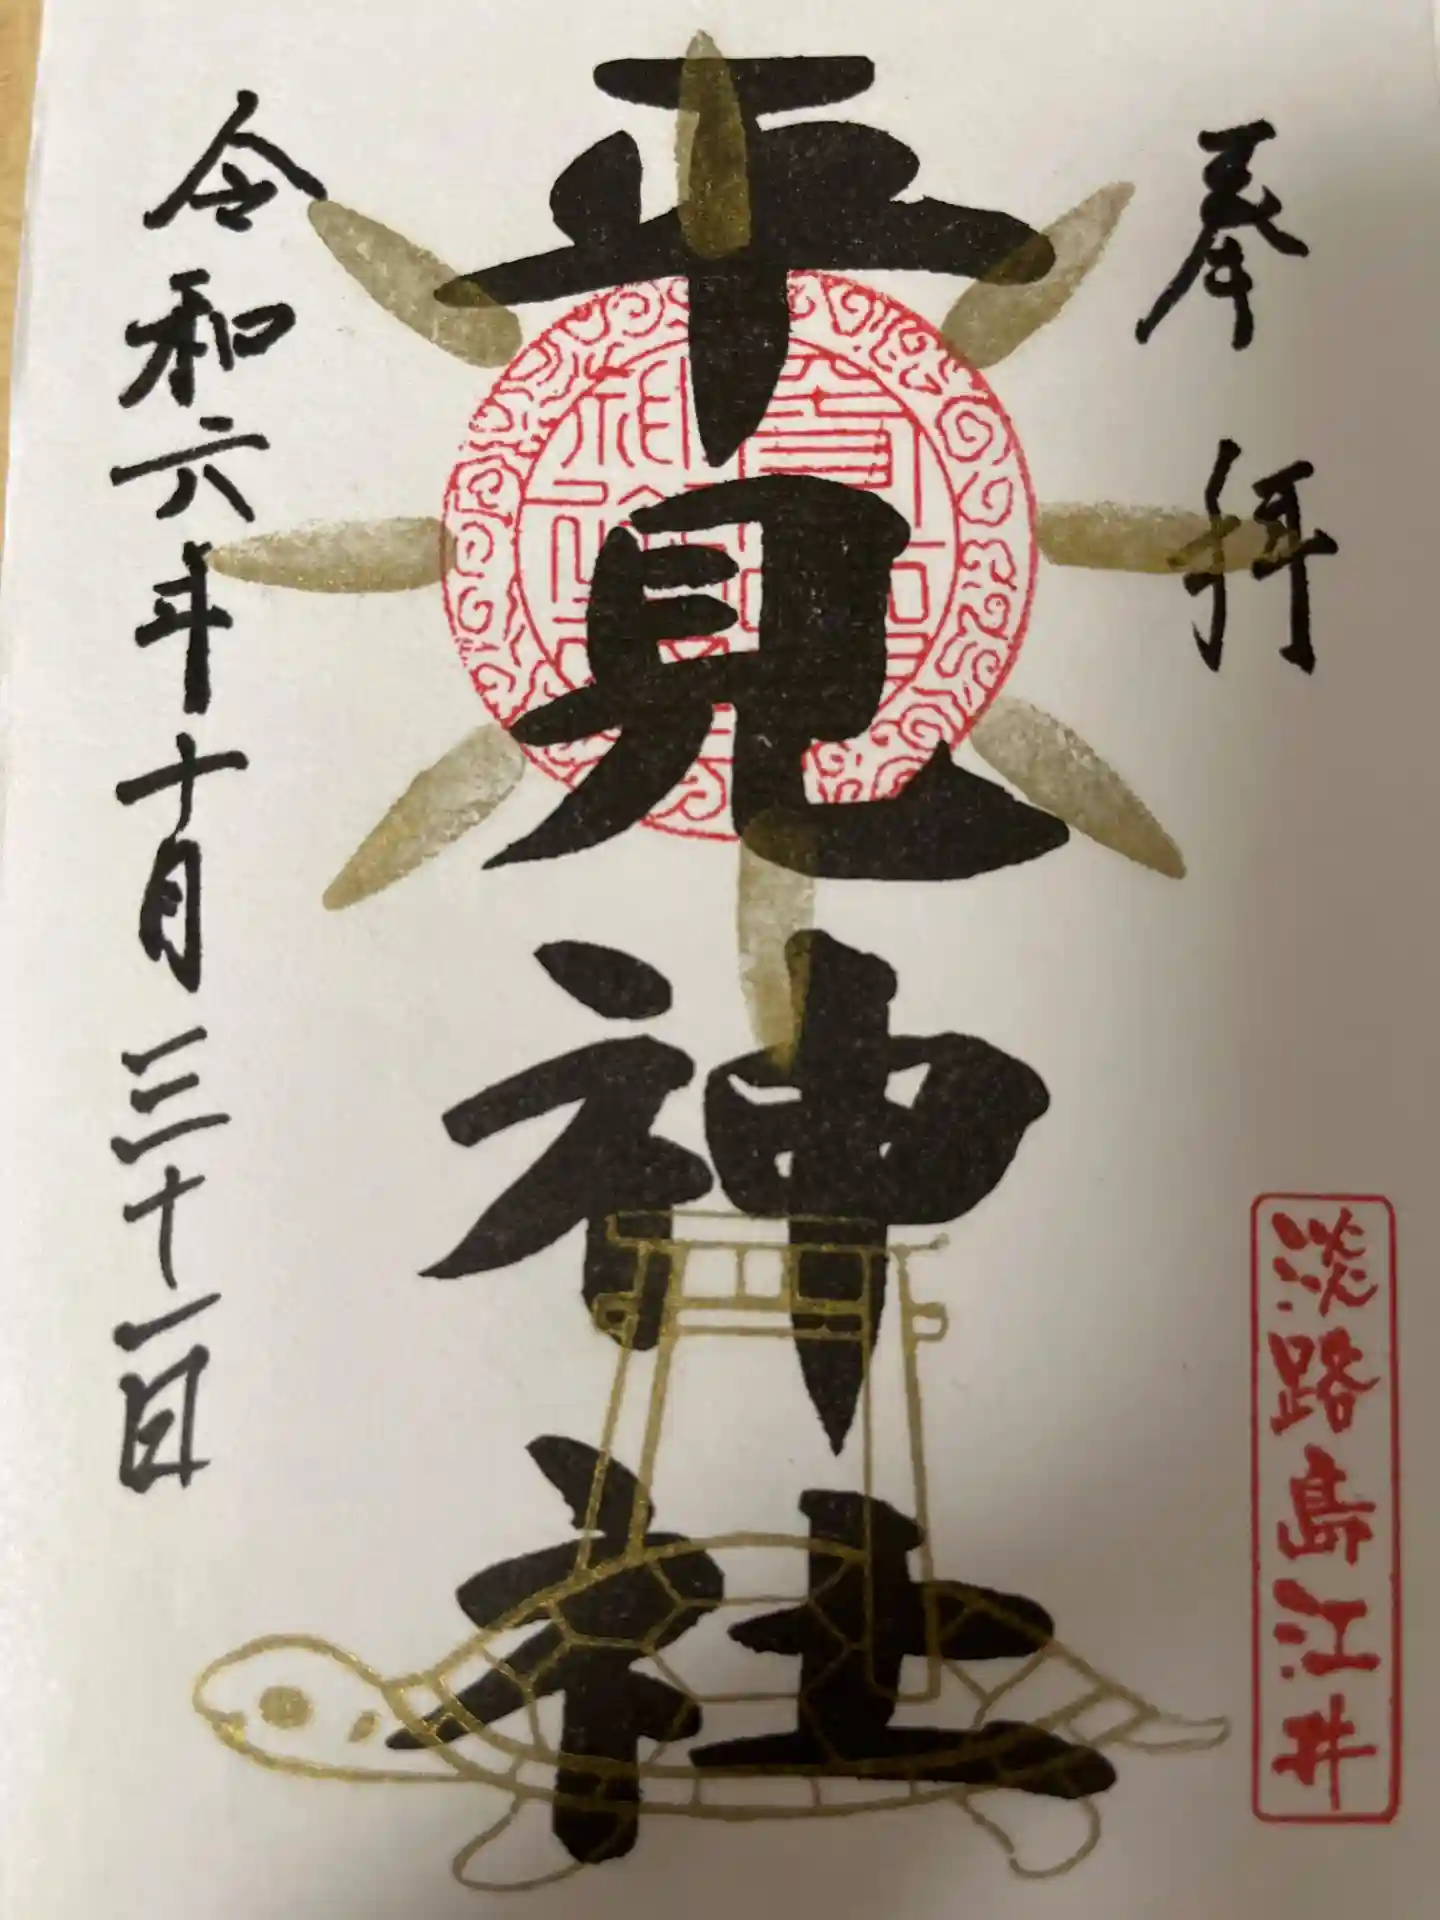 奉拝
淡路島江井
平見神社
令和六年十月三十一日